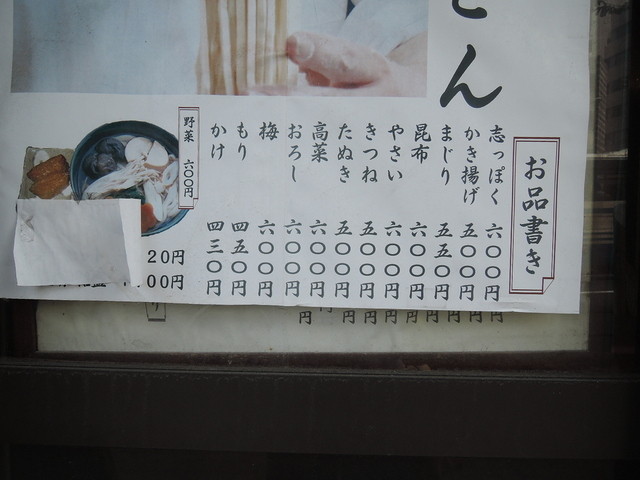 どん
お品書き
志っぽく 六〇〇円
かき揚げ 五〇〇円
まじり 五五〇円
昆布 六〇〇円
やさい 六〇〇円
きつね 五〇〇円
たぬき 五〇〇円
高菜 六〇〇円
おろし 六〇〇円
梅 六〇〇円
もり 四五〇円
かけ 四三〇円
野菜 六〇〇円
20円
00円
円 円 円 円 円 円 円 円